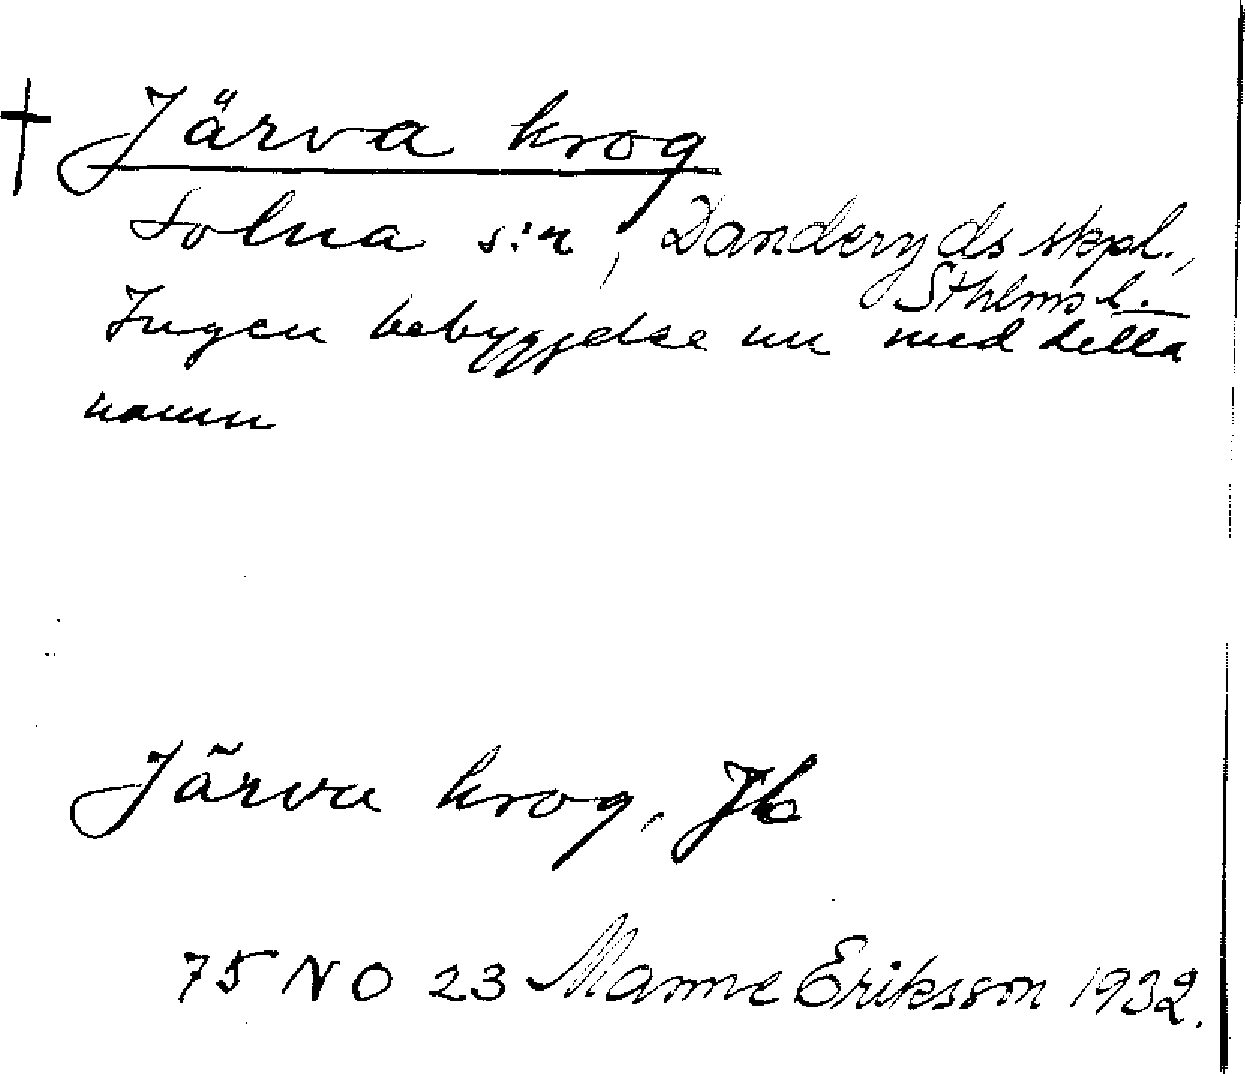 † Järva krog
Solna s:n, Danderyds skpl.,
Sthlms l.
Ingen bebyggelse nu med detta
namn
Järva krog, Jb
75 NO 23 Manne Eriksson 1932.